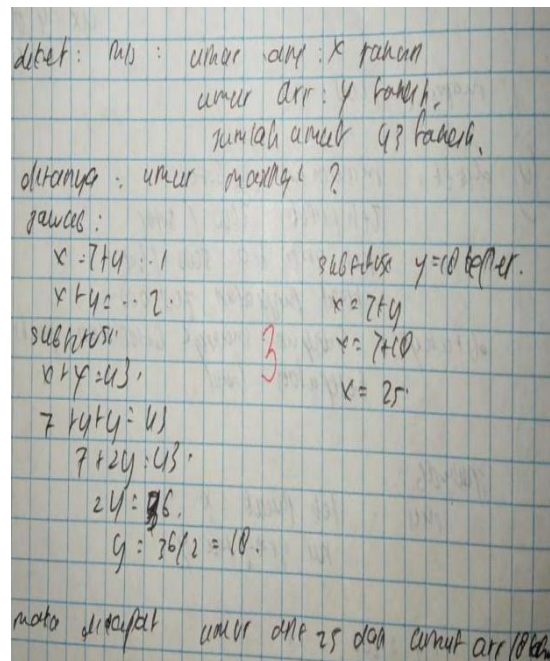 diket: mis: umur ani: x tahun
umur ari: y tahun.
jumlah umur 43 tahun.
ditanya: umur masing2 ?
jawab:
x = 7+y ... 1
x+y = ... 2.
substitusi
x+y = 43.
7+y+y = 43
7+2y = 43.
2y = 36.
y = 36/2 = 18.
substitusi y=18 ke per.
x = 7+y
x = 7+18
x = 25
3
maka didapat umur ani 25 dan umur ari 18